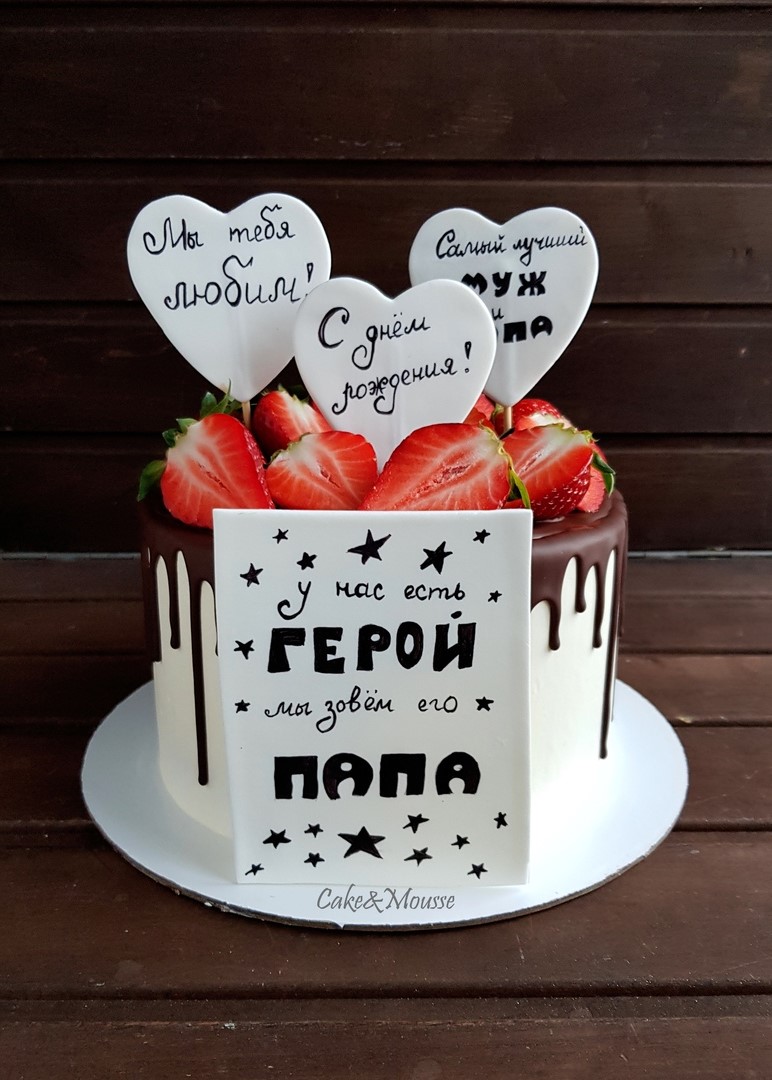 Мы тебя
любим!
Самый лучший
МУЖ
и
ПАПА
С днём
рождения!
у нас есть
ГЕРОЙ
мы зовём его
ПАПА
Cake&Mousse